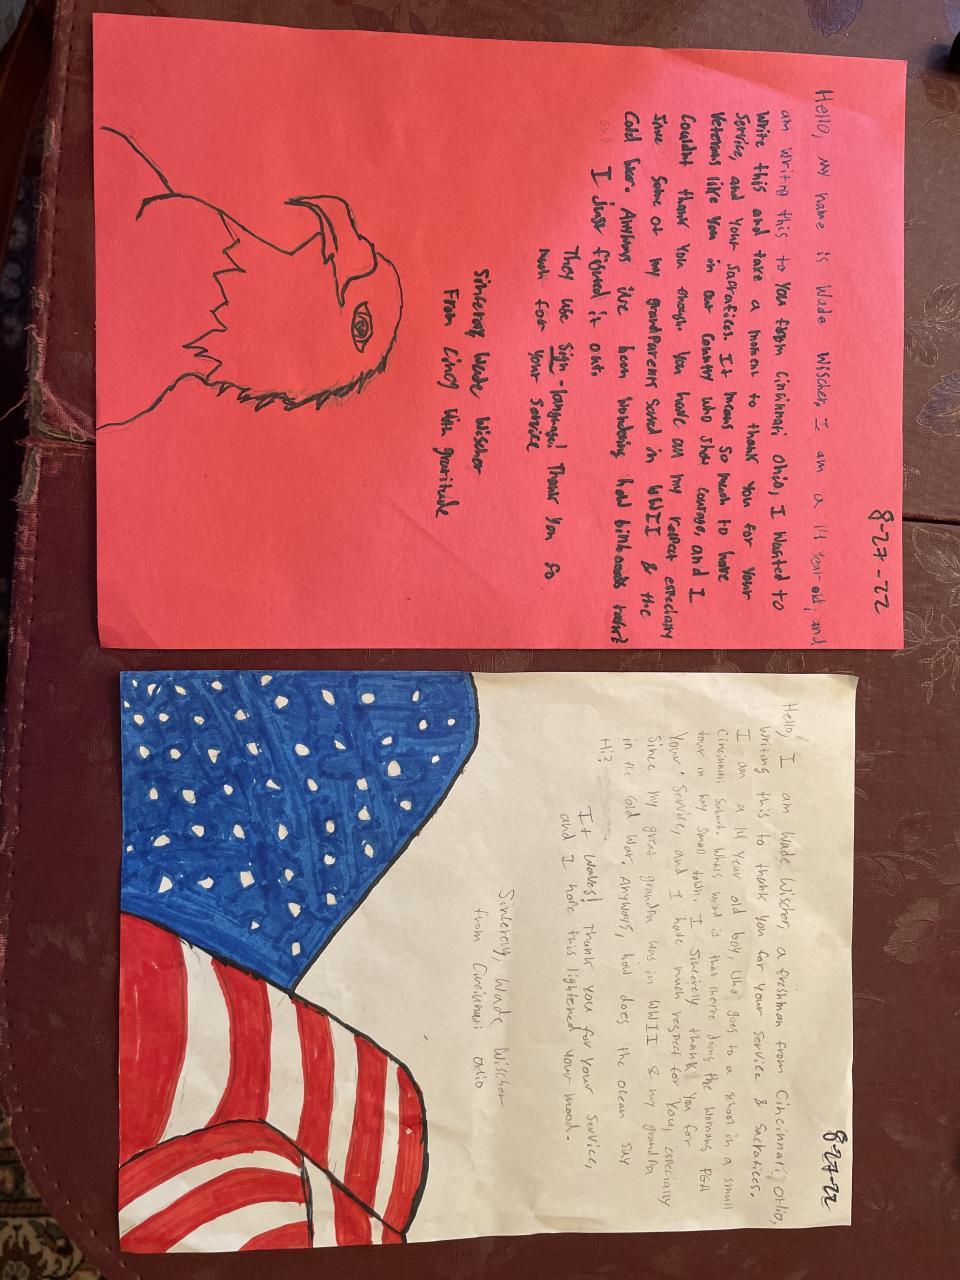 8-27-22
Hello, my name is Wade Wischer, I am a 14 year old, and
am writing this to you from Cincinnati Ohio, I wanted to
write this and take a moment to thank you for your
Service, and your Sacrafices. It means so much to have
Veterans like you in our Country who show courage, and I
Couldnt thank you enough. You have all my respect especially
Since some of my grandparents Served in WWII & the
Cold War. Anyways ive been wondering how
and I just figured it out.
They use Sign-language! Thank you so
much for your service
Sincerely Wade Wischer
From Cincy With gratitude
8-27-22
Hello, I am Wade Wischer, a freshman from Cincinnati, Ohio,
Writing this to thank you for your service & sacrafices.
I am a 14 year old boy, who goes to a school in a small
Cincinnati suburb. Whats is that there doing the Womans PGA
tour in my small town. I Sincerely thank you for
Your Service, and I have much respect for you, especially
Since my great grandpa was in WWII & my grandpa
in the Cold War. Anyways, how does the ocean say
Hi?
It Waves! Thank you for your service,
and I hope this lightened your mood.
Sincerely, Wade Wischer
from Cincinnati Ohio